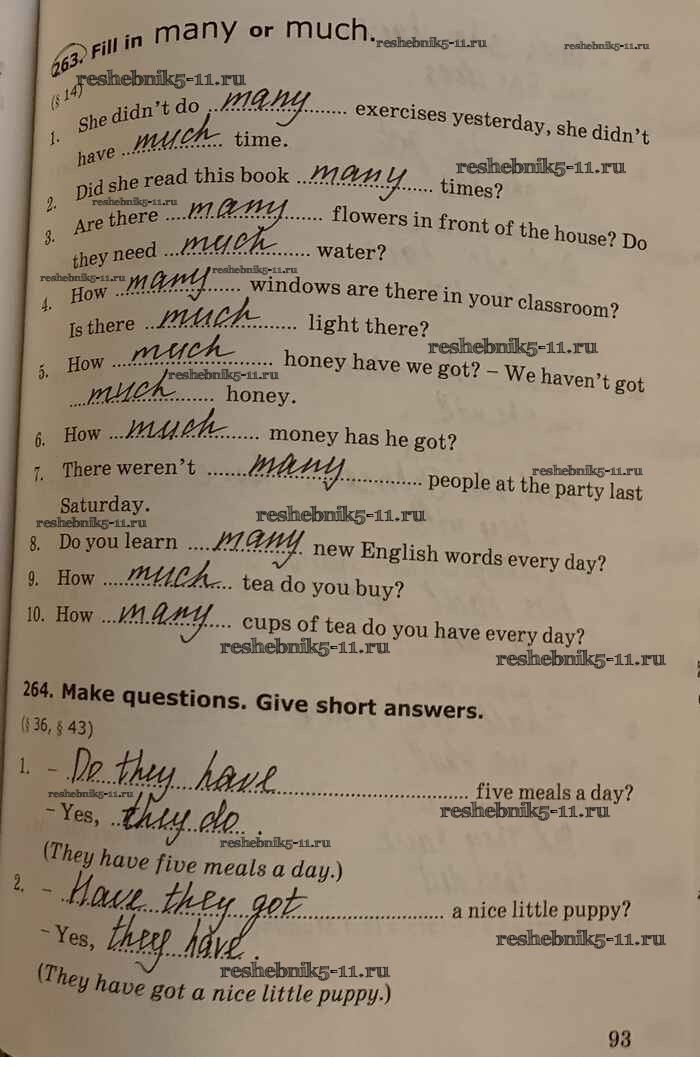 263. Fill in many or much.
reshebnik5-11.ru reshebnik5-11.ru
reshebnik5-11.ru
(§ 14)
1. She didn't do many exercises yesterday, she didn't
have much time.
reshebnik5-11.ru
2. Did she read this book many times?
reshebnik5-11.ru
3. Are there many flowers in front of the house? Do
they need much water?
reshebnik5-11.ru reshebnik5-11.ru
4. How many windows are there in your classroom?
Is there much light there?
reshebnik5-11.ru
5. How much honey have we got? – We haven't got
reshebnik5-11.ru
much honey.
6. How much money has he got?
7. There weren't many people at the party last
reshebnik5-11.ru
Saturday.
reshebnik5-11.ru reshebnik5-11.ru
8. Do you learn many new English words every day?
9. How much tea do you buy?
10. How many cups of tea do you have every day?
reshebnik5-11.ru reshebnik5-11.ru
264. Make questions. Give short answers.
(§ 36, § 43)
1. – Do they have five meals a day?
reshebnik5-11.ru reshebnik5-11.ru
– Yes, they do.
reshebnik5-11.ru
(They have five meals a day.)
2. – Have they got a nice little puppy?
– Yes, they have.
reshebnik5-11.ru
reshebnik5-11.ru
(They have got a nice little puppy.)
93